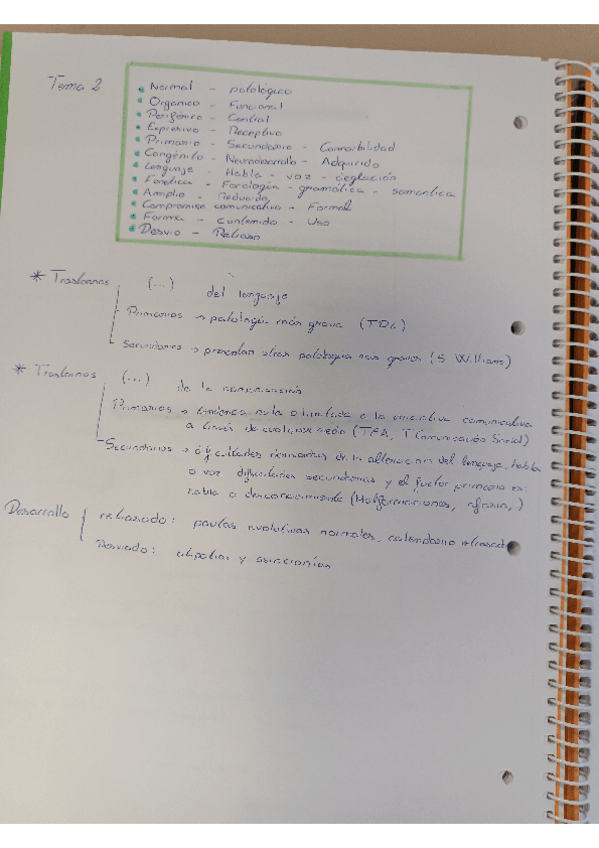 Tema 2
Normal - patológico
Organico - Funcional
Periférico - Central
Expresivo - Receptivo
Primario - Secundario - Comorbilidad
Congénito - Neurodesarrollo - Adquirido
Lenguaje - Habla - voz - deglución
Fonética - Fonología - gramática - semantica
Amplio - Reducido
Compromiso comunicativo - Formal
Forma - contenido - Uso
Desvio - Retraso
* Trastornos (...) del lenguaje
Primarios → patología más grave (TDL)
Secundarios → presentan otras patologías más graves (S Williams)
* Trastornos (...) de la comunicación
Primarios → tendencia nula o limitada a la iniciativa comunicativa
a través de cualquier medio (TEA, T Comunicación Social)
Secundarios → dificultades derivadas de la alteracion del lenguaje, habla
o voz dificultades secundarias y el factor primario es:
habla o desconocimiento (Malformaciones, afasia,)
Desarrollo
retrasado: pautas evolutivas normales, calendario retrasado
Desviado: atipatias y asincronías